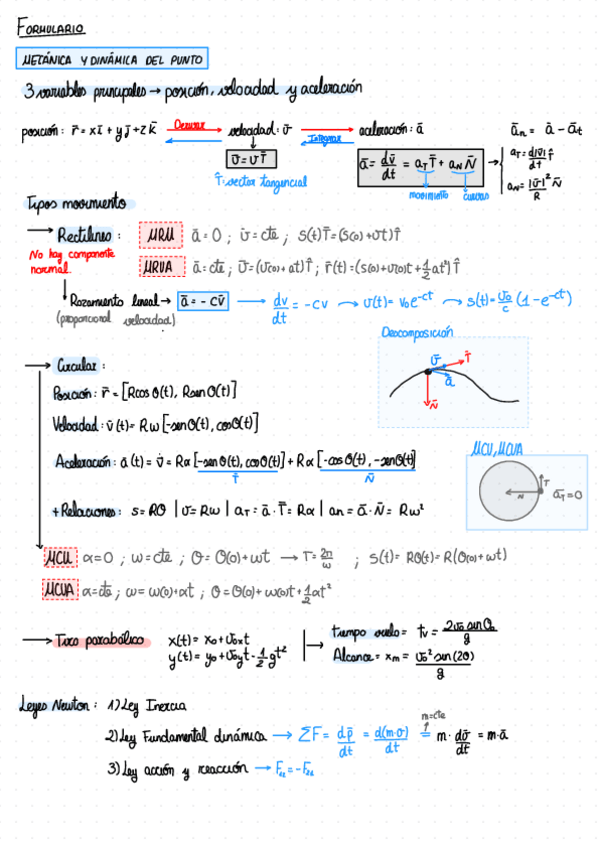 FORMULARIO
MECÁNICA Y DINÁMICA DEL PUNTO
3 variables principales → posición, velocidad y aceleración
posición: r̄ = xī + yj̄ + zk̄  Derivar  velocidad: v̄  Integrar  aceleración: ā  ān = ā - āt
v̄ = vT̄
ā = dv̄/dt = aT T̄ + aN N̄
aT = d|v̄|/dt T̂
aN = |v̄|²/R N̄
T̂: vector tangencial
movimiento  curvas
Tipos movimiento
→ Rectilíneo: MRU ā = 0 ; v̄ = cte ; s(t)T̄ = (s(0)+vt)T̂
No hay componente normal.
MRUA ā = cte ; v̄ = (v(0)+at)T̂ ; r̄(t) = (s(0)+v(0)t+½at²)T̂
Rozamiento lineal → ā = -cv̄ → dv/dt = -cv → v(t) = v₀e^-ct → s(t) = v₀/c (1-e^-ct)
(proporcional velocidad)
Descomposición
v̄ T̄
ā
N̄
→ Circular:
Posición: r̄ = [Rcos θ(t), Rsen θ(t)]
Velocidad: v̄(t) = Rω[-senθ(t), cosθ(t)]
Aceleración: ā(t) = v̄ = Rα[-senθ(t), cosθ(t)] + Rα[-cosθ(t), -senθ(t)]
T̄  N̄
MCU, MCUA
T
N
āT = 0
+Relaciones: s = Rθ | v = Rω | aT = ā · T̄ = Rα | an = ā · N̄ = Rω²
MCU α = 0 ; ω = cte ; θ = θ(0) + ωt → T = 2π/ω ; s(t) = Rθ(t) = R(θ(0)+ωt)
MCUA α = cte ; ω = ω(0)+αt ; θ = θ(0) + ω(0)t + ½αt²
→ Tiro parabólico x(t) = x₀ + v₀xt
y(t) = y₀ + v₀yt - ½gt²
→ Tiempo vuelo = tv = 2v₀ sin θ₀/g
Alcance = xm = v₀² sin(2θ)/g
Leyes Newton: 1) Ley Inercia
2) Ley Fundamental dinámica → ΣF = dp̄/dt = d(m·v)/dt = m · dv̄/dt = m·ā
m=cte
3) Ley acción y reacción → F₁₂ = -F₂₁